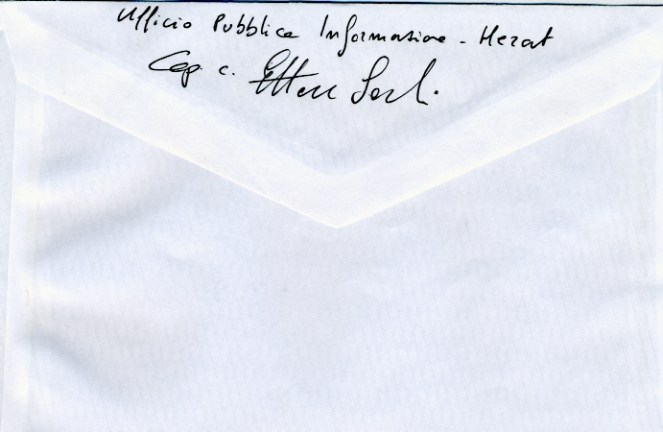 Ufficio Pubblica Informazione - Herat
Cap. c. Ettore